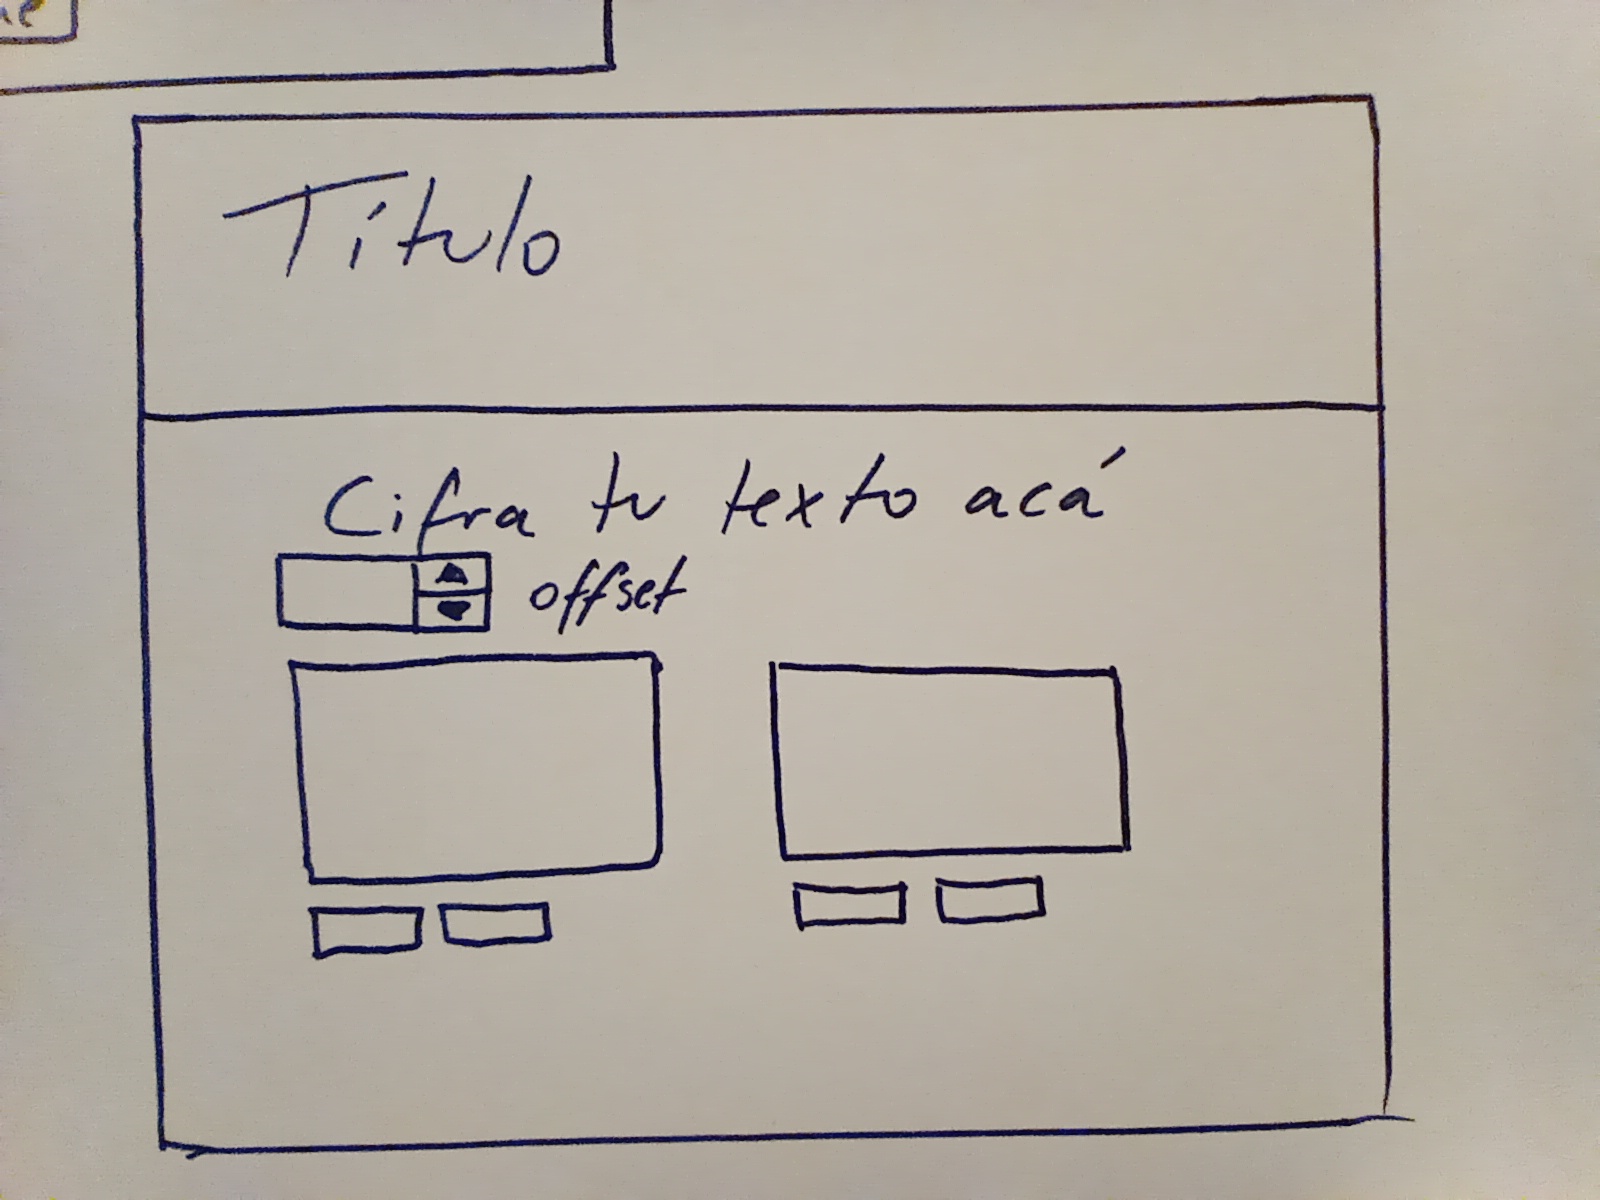 Título
Cifra tu texto acá
offset